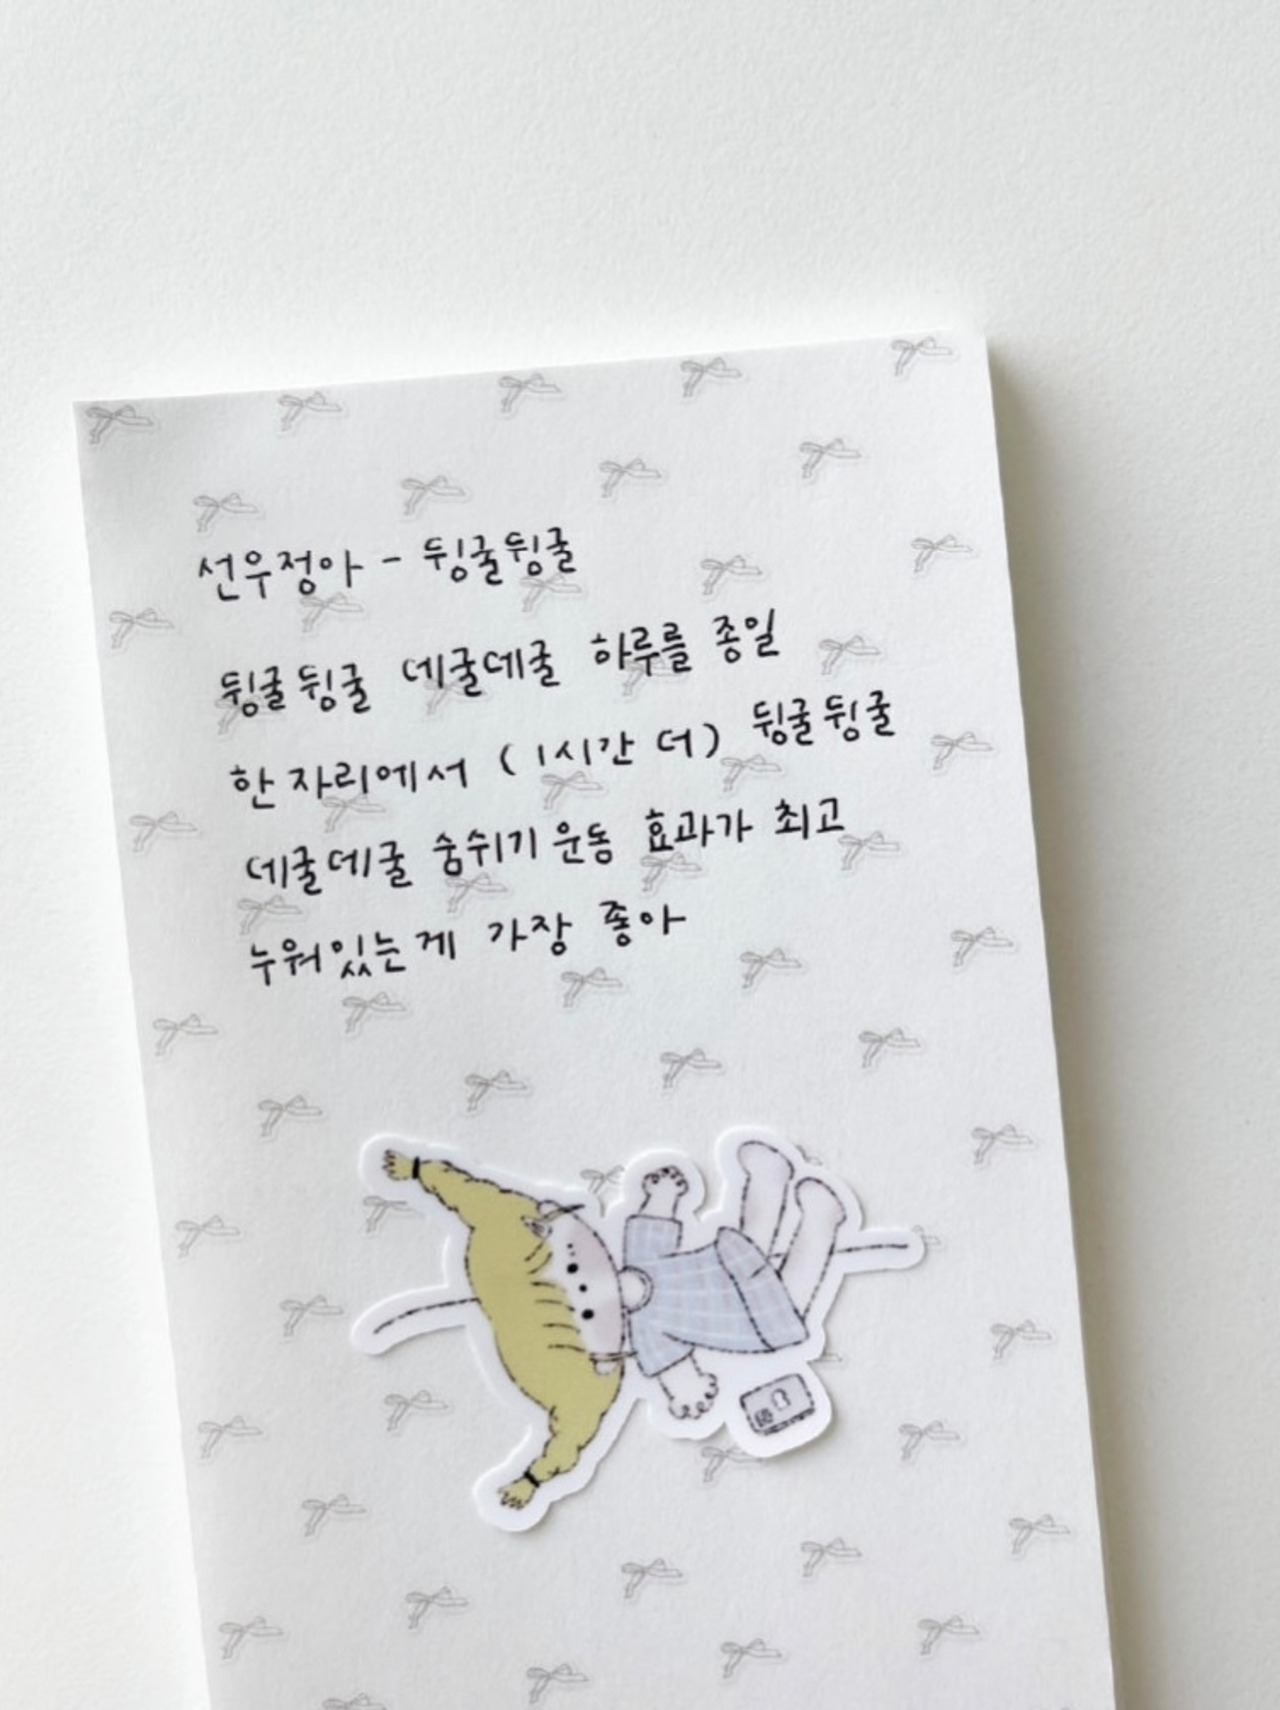 선우정아 - 뒹굴뒹굴
뒹굴뒹굴 데굴데굴 하루를 종일
한 자리에서 (1시간 더) 뒹굴뒹굴
데굴데굴 숨쉬기 운동 효과가 최고
누워있는게 가장 좋아